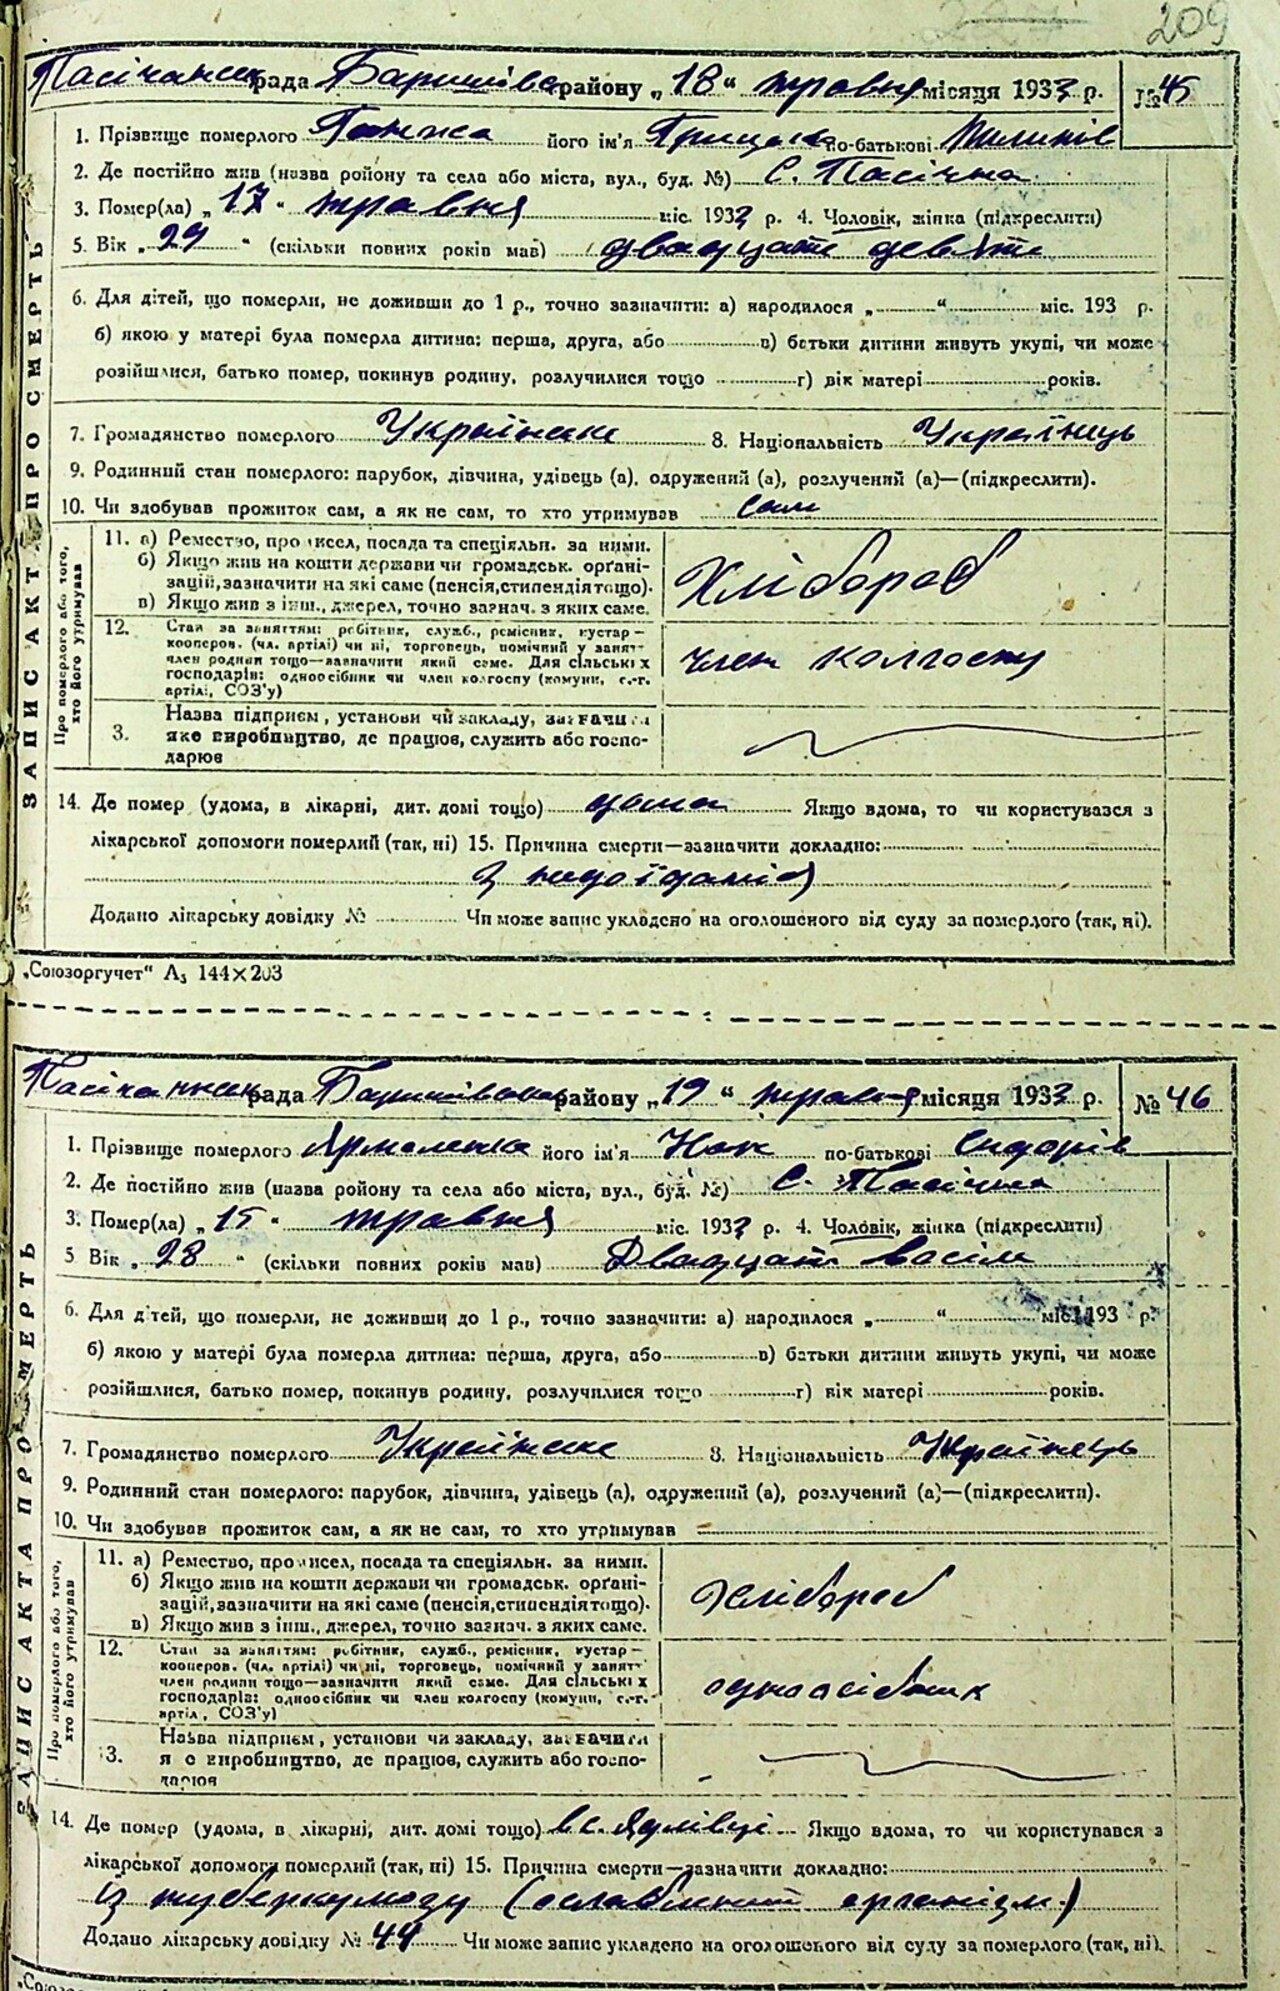 209
рада Баришівс району „18“ травня місяця 1933 р. №45
1. Прізвище померлого його ім'я Грицько по-батькові Пилипів
2. Де постійно жив (назва ройону та села або міста, вул., буд. №) с. Пасічна
3. Помер(ла) „17“ травня міс. 1933 р. 4. Чоловік, жінка (підкреслити)
5. Вік „29“ (скільки повних років мав) двадцать девять
6. Для дітей, що померли, не доживши до 1 р., точно зазначити: а) народилося „ “ міс. 193 р.
б) якою у матері була померла дитина: перша, друга, або в) батьки дитини живуть укупі, чи може
розійшлися, батько помер, покинув родину, розлучилися тощо г) вік матері років.
7. Громадянство померлого Українське 8. Національність Українець
9. Родинний стан померлого: парубок, дівчина, удівець (а), одружений (а), розлучений (а)—(підкреслити).
10. Чи здобував прожиток сам, а як не сам, то хто утримував сам
ЗАПИС АКТА ПРО СМЕРТЬ
Про померлого або того, хто його утримував
11. а) Ремество, промисел, посада та спеціяльн. за ними.
б) Якщо жив на кошти держави чи громадськ. орґані-
зацій, зазначити на які саме (пенсія, стипендія тощо).
в) Якщо жив з інш., джерел, точно зазнач. з яких саме.
Хлібороб
12. Стан за заняттям: робітник, служб., ремісник, кустар—
кооперов. (чл. артілі) чи ні, торговець, помічний у занят
член родини тощо—зазначити який саме. Для сільських
господарів: одноосібник чи член колгоспу (комуни, с.-г.
артілі, СОЗ'у)
член колгоспу
3. Назва підприєм, установи чи закладу, зазначити
яке виробництво, де працює, служить або госпо-
дарює
14. Де помер (удома, в лікарні, дит. домі тощо) дома Якщо вдома, то чи користувався з
лікарської допомоги померлий (так, ні) 15. Причина смерти—зазначити докладно:
з недоїданія
Додано лікарську довідку № Чи може запис укладено на оголошеного від суду за померлого (так, ні).
„Союзоргучет“ А₃ 144×203
рада Баришівськ району „19“ травня місяця 1933 р. №46
1. Прізвище померлого Ярмоленко його ім'я по-батькові Сидорів
2. Де постійно жив (назва ройону та села або міста, вул., буд. №) с. Пасічна
3. Помер(ла) „15“ травня міс. 1933 р. 4. Чоловік, жінка (підкреслити)
5 Вік „28“ (скільки повних років мав) Двадцать восім
6. Для дітей, що померли, не доживши до 1 р., точно зазначити: а) народилося „ “ міс. 193 р.
б) якою у матері була померла дитина: перша, друга, або в) батьки дитини живуть укупі, чи може
розійшлися, батько помер, покинув родину, розлучилися тощо г) вік матері років.
7. Громадянство померлого Українське 8. Національність Українець
9. Родинний стан померлого: парубок, дівчина, удівець (а), одружений (а), розлучений (а)—(підкреслити).
10. Чи здобував прожиток сам, а як не сам, то хто утримував
ЗАПИС АКТА ПРО СМЕРТЬ
Про померлого або того, хто його утримував
11. а) Ремество, промисел, посада та спеціяльн. за ними.
б) Якщо жив на кошти держави чи громадськ. орґані-
зацій, зазначити на які саме (пенсія, стипендія тощо).
в) Якщо жив з інш., джерел, точно зазнач. з яких саме.
Хлібороб
12. Стан за заняттям: робітник, служб., ремісник, кустар—
кооперов. (чл. артілі) чи ні, торговець, помічний у занят
член родини тощо—зазначити який саме. Для сільських
господарів: одноосібник чи член колгоспу (комуни, с.-г.
артіл, СОЗ'у)
одноосібник
3. Назва підприєм, установи чи закладу, зазначити
я е виробництво, де працює, служить або госпо-
дарює
14. Де помер (удома, в лікарні, дит. домі тощо) в с. Якщо вдома, то чи користувався з
лікарської допомоги померлий (так, ні) 15. Причина смерти—зазначити докладно:
із туберкульозу (ослаблений організм)
Додано лікарську довідку № 44 Чи може запис укладено на оголошеного від суду за померлого (так, ні).